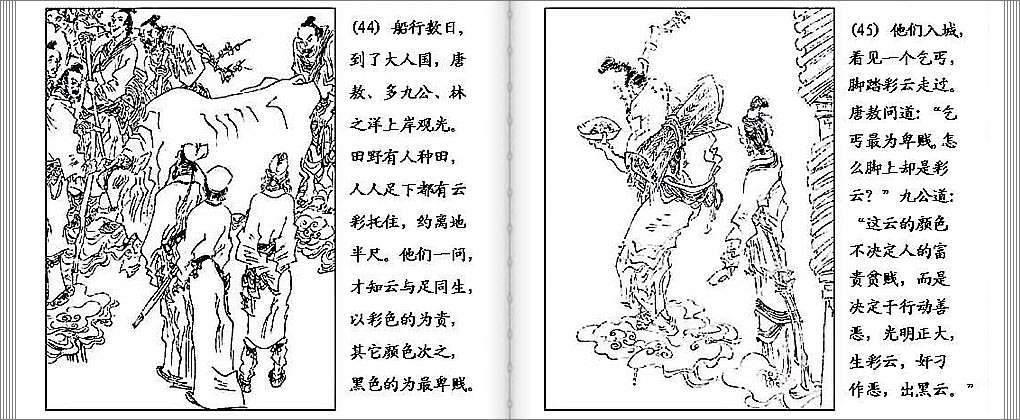 (44) 船行数日,
到了大人国，唐
敖、多九公、林
之洋上岸观光。
田野有人种田,
人人足下都有云
彩托住，约离地
半尺。他们一问,
才知云与足同生,
以彩色的为贵,
其它颜色次之,
黑色的为最卑贱。
(45) 他们入城,
看见一个乞丐,
脚踏彩云走过。
唐敖问道：“乞
丐最为卑贱,怎
么脚上却是彩
云？”九公道：
“这云的颜色
不决定人的富
贵贫贱，而是
决定于行动善
恶，光明正大,
生彩云，奸刁
作恶，出黑云。”